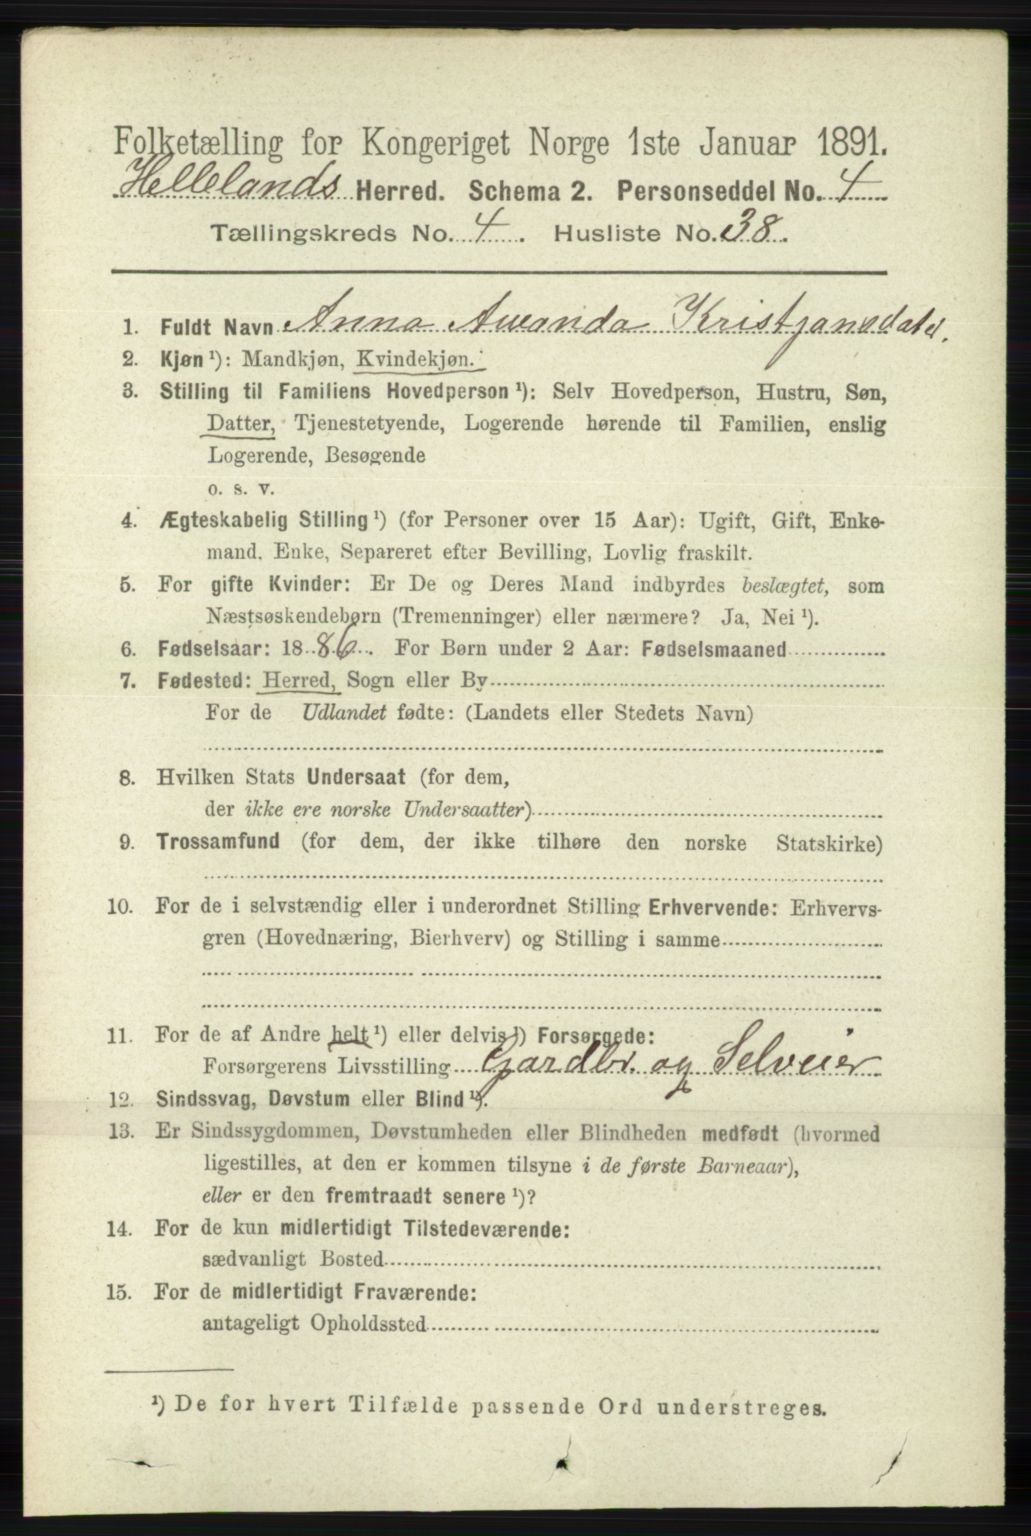 Folketælling for Kongeriget Norge 1ste Januar 1891.
Hellelands Herred. Schema 2. Personseddel No. 4
Tællingskreds No. 4. Husliste No. 38.
1. Fuldt Navn Anna Amanda Kristjansdatr.
2. Kjøn ¹): Mandkjøn, Kvindekjøn.
3. Stilling til Familiens Hovedperson ¹): Selv Hovedperson, Hustru, Søn,
Datter, Tjenestetyende, Logerende hørende til Familien, enslig
Logerende, Besøgende
o. s. v.
4. Ægteskabelig Stilling ¹) (for Personer over 15 Aar): Ugift, Gift, Enke-
mand, Enke, Separeret efter Bevilling, Lovlig fraskilt.
5. For gifte Kvinder: Er De og Deres Mand indbyrdes beslægtet, som
Næstsøskendebørn (Tremenninger) eller nærmere? Ja, Nei ¹).
6. Fødselsaar: 1886. For Børn under 2 Aar: Fødselsmaaned
7. Fødested: Herred, Sogn eller By
For de Udlandet fødte: (Landets eller Stedets Navn)
8. Hvilken Stats Undersaat (for dem,
der ikke ere norske Undersaatter)
9. Trossamfund (for dem, der ikke tilhøre den norske Statskirke)
10. For de i selvstændig eller i underordnet Stilling Erhvervende: Erhvervs-
gren (Hovednæring, Bierhverv) og Stilling i samme
11. For de af Andre helt ¹) eller delvis ¹) Forsørgede:
Forsørgerens Livsstilling Gardbr. og Selveier
12. Sindssvag, Døvstum eller Blind ¹).
13. Er Sindssygdommen, Døvstumheden eller Blindheden medfødt (hvormed
ligestilles, at den er kommen tilsyne i de første Barneaar),
eller er den fremtraadt senere ¹)?
14. For de kun midlertidigt Tilstedeværende:
sædvanligt Bosted
15. For de midlertidigt Fraværende:
antageligt Opholdssted
¹) De for hvert Tilfælde passende Ord understreges.